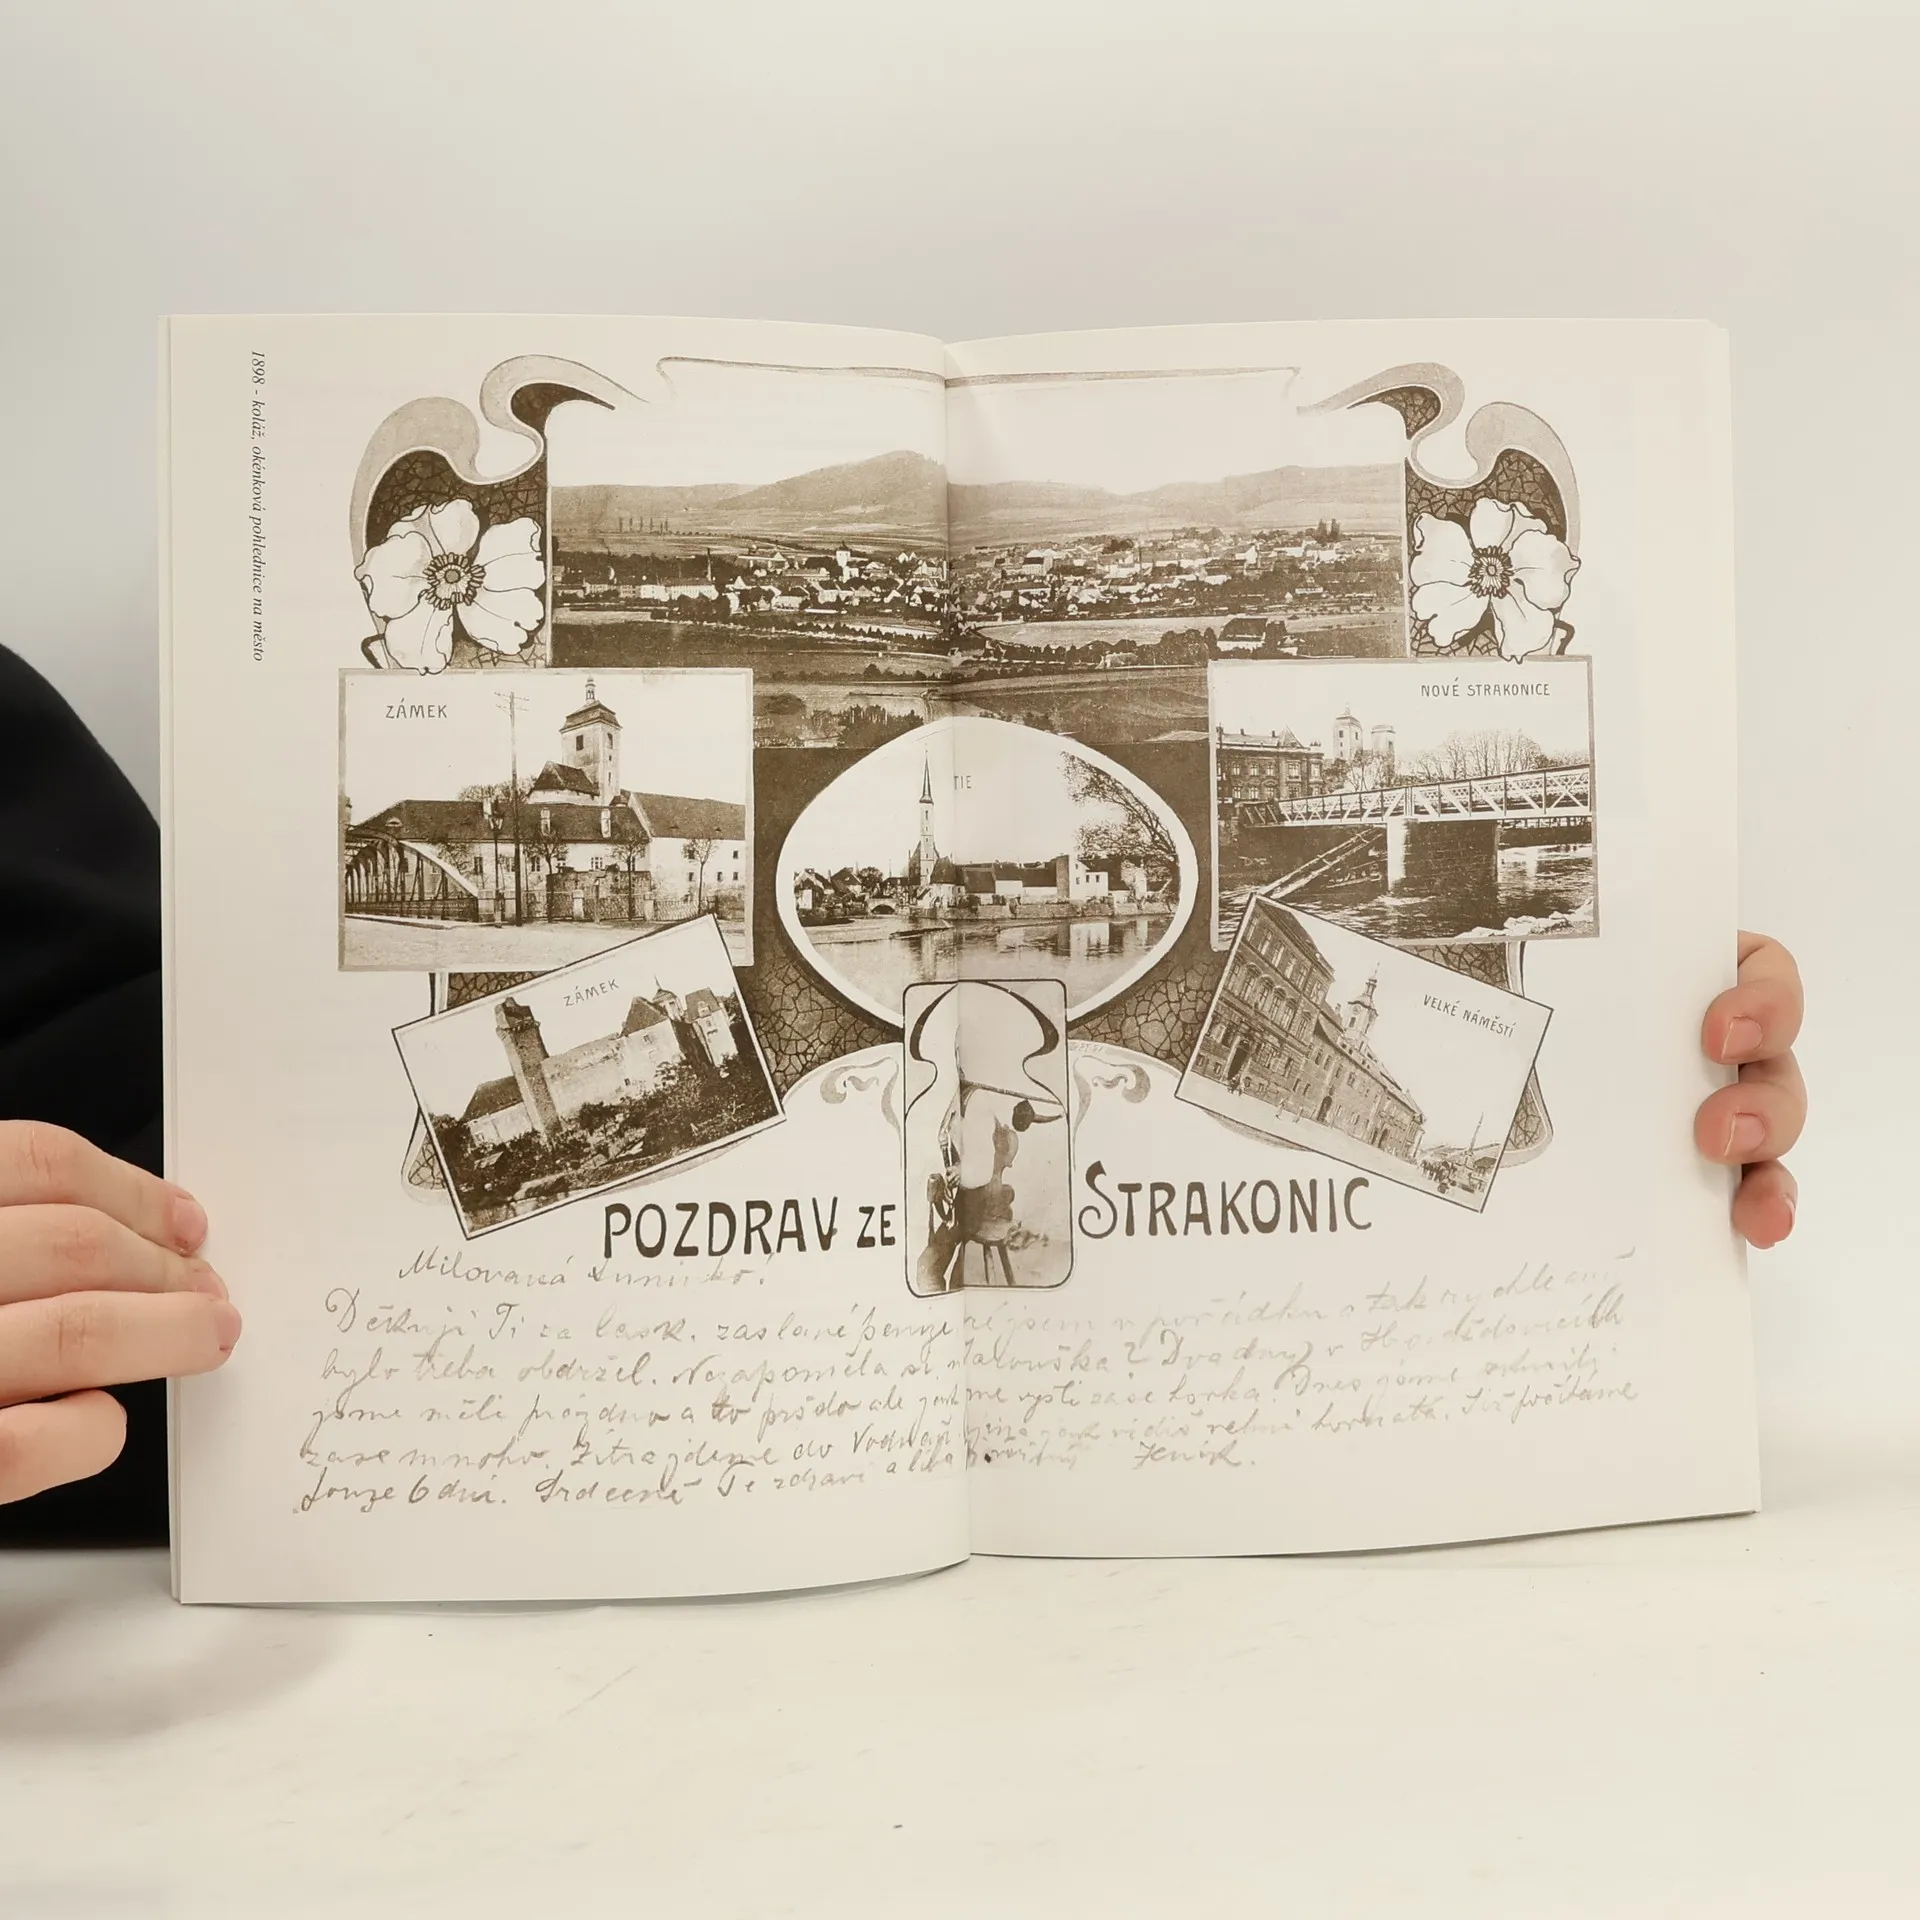 1898 - koláž, okénková pohlednice na město
ZÁMEK
NOVÉ STRAKONICE
TIE
ZÁMEK
VELKÉ NÁMĚSTÍ
POZDRAV ZE STRAKONIC
Milovaná
Děkuji Ti za lask. zaslané peníze jsem v pořádku a tak rychle
bylo třeba obdržel. Nezapoměla si Dva dny v
jsme měli prázdno a to pršelo ale zase horka. Dnes jsme
zase mnoho. Zítra jdeme do Vodňan vidíš velmi hornatá. Již počítáme
pouze 6 dní. Srdečně Tě zdraví a líbá Jeník.